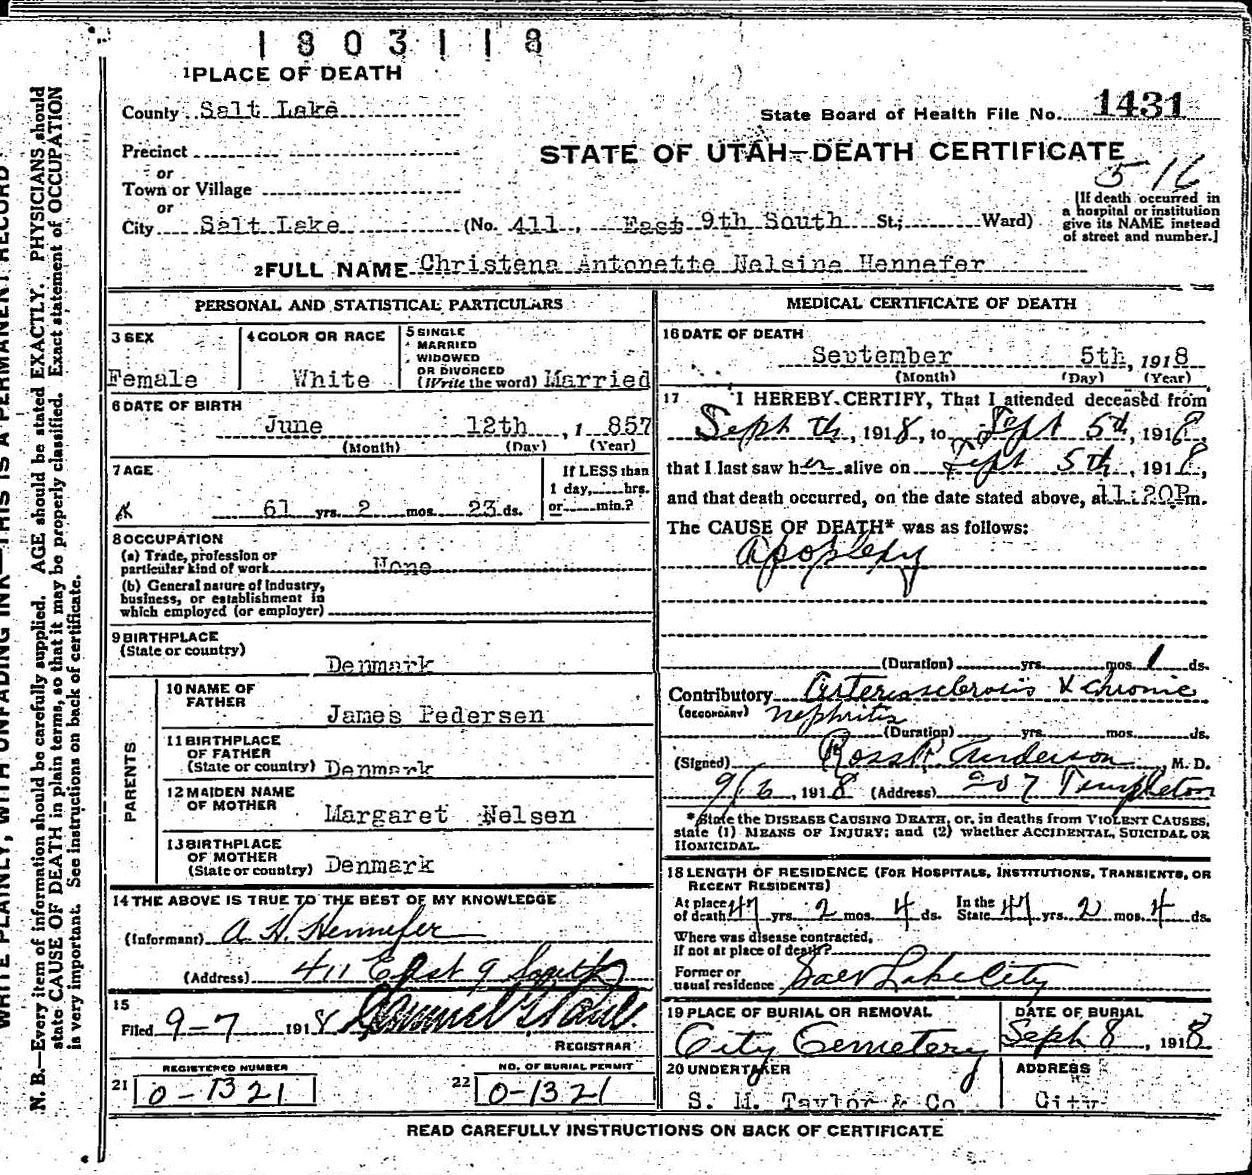 1803118
1 PLACE OF DEATH
County Salt Lake
State Board of Health File No. 1431
Precinct
STATE OF UTAH—DEATH CERTIFICATE
or
5-16
Town or Village
or
City Salt Lake (No. 411, East 9th South St; Ward)
[If death occurred in
a hospital or institution
give its NAME instead
of street and number.]
2 FULL NAME Christena Antonette Nelsine Hennefer
PERSONAL AND STATISTICAL PARTICULARS
3 SEX
Female
4 COLOR OR RACE
White
5 SINGLE
MARRIED
WIDOWED
OR DIVORCED
(Write the word) Married
6 DATE OF BIRTH
June 12th, 1 857
(Month) (Day) (Year)
7 AGE
61 yrs. 2 mos. 23 ds.
If LESS than
1 day, hrs.
or min.?
8 OCCUPATION
(a) Trade, profession or
particular kind of work None
(b) General nature of industry,
business, or establishment in
which employed (or employer)
9 BIRTHPLACE
(State or country)
Denmark
PARENTS
10 NAME OF
FATHER
James Pedersen
11 BIRTHPLACE
OF FATHER
(State or country) Denmark
12 MAIDEN NAME
OF MOTHER
Margaret Nelsen
13 BIRTHPLACE
OF MOTHER
(State or country) Denmark
14 THE ABOVE IS TRUE TO THE BEST OF MY KNOWLEDGE
(Informant) A. H. Hennefer
(Address) 411 East 9 South
15
Filed 9-7 1918
REGISTRAR
REGISTERED NUMBER
21 0-1321
NO. OF BURIAL PERMIT
22 0-1321
MEDICAL CERTIFICATE OF DEATH
16 DATE OF DEATH
September 5th, 1918
(Month) (Day) (Year)
17 I HEREBY CERTIFY, That I attended deceased from
Sept th, 1918, to Sept 5th, 1918,
that I last saw her alive on Sept 5th, 1918,
and that death occurred, on the date stated above, at 11:20P m.
The CAUSE OF DEATH* was as follows:
Apoplexy
(Duration) yrs. mos. 1 ds.
Contributory Arteriosclerosis & chronic
(SECONDARY) nephritis
(Duration) yrs. mos. ds.
(Signed) Ross Anderson, M. D.
9/6, 1918 (Address) 207 Templeton
*State the DISEASE CAUSING DEATH, or, in deaths from VIOLENT CAUSES,
state (1) MEANS OF INJURY; and (2) whether ACCIDENTAL, SUICIDAL OR
HOMICIDAL.
18 LENGTH OF RESIDENCE (FOR HOSPITALS, INSTITUTIONS, TRANSIENTS, OR
RECENT RESIDENTS)
At place
of death 47 yrs. 2 mos. 4 ds.
In the
State 47 yrs. 2 mos. 4 ds.
Where was disease contracted,
if not at place of death?
Former or
usual residence Salt Lake City
19 PLACE OF BURIAL OR REMOVAL
City Cemetery
DATE OF BURIAL
Sept 8, 1918
20 UNDERTAKER
S. M. Taylor & Co
ADDRESS
City
READ CAREFULLY INSTRUCTIONS ON BACK OF CERTIFICATE
WRITE PLAINLY, WITH UNFADING INK—THIS IS A PERMANENT RECORD
N. B.—Every item of information should be carefully supplied. AGE should be stated EXACTLY. PHYSICIANS should
state CAUSE OF DEATH in plain terms, so that it may be properly classified. Exact statement of OCCUPATION
is very important. See instructions on back of certificate.